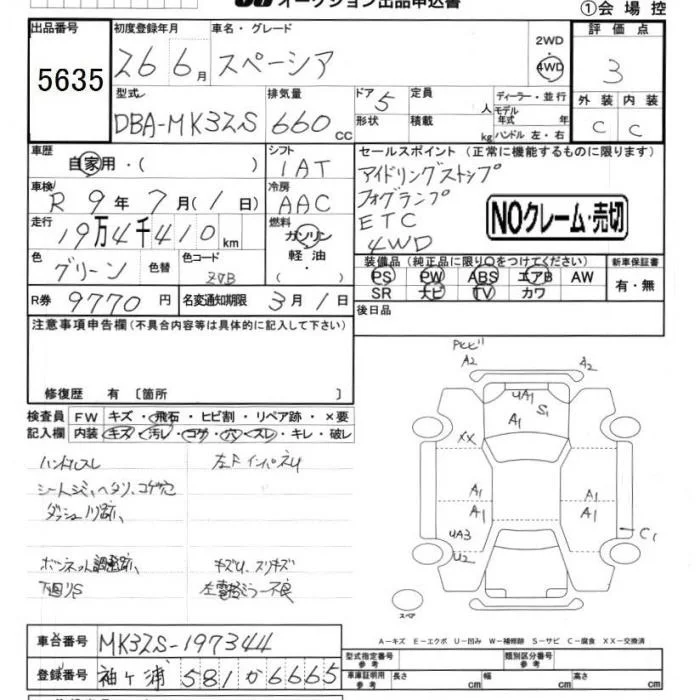 オークション出品申込書
①会場控
出品番号 初度登録年月 車名・グレード 2WD 評価点
5635 26 6月 スペーシア 4WD 3
型式 排気量 ドア 5 定員 人 ディーラー・並行 外装 内装
DBA-MK32S 660 cc 形状 積載 kg モデル年式 年 ハンドル 左・右 C C
車歴 シフト セールスポイント (正常に機能するものに限ります)
自家用・( ) 1AT アイドリングストップ
車検 冷房 フォグランプ
R 9年 7月(1日) AAC ETC
走行 燃料 4WD
19万4千410km ガソリン NOクレーム・売切
色 色替 色コード 軽油・( )
グリーン ZVB
装備品 (純正品に限り○をつけてください) 新車保証書
PS PW ABS エアB AW 有・無
SR ナビ TV カワ
R券 9770円 名変通知期限 3月1日
後日品
注意事項申告欄 (不具合内容等は具体的に記入して下さい)
修復歴 有 〔箇所 〕
検査員 FW キズ・飛石・ヒビ割・リペア跡・×要
記入欄 内装 キズ・汚レ・コゲ・穴・スレ・キレ・破レ
ハンドルスレ 左Fインパネ
シート
ボンネット調整跡、 キズU、スリキズ
下回りS 左電格ミラー不良
A2 A2
UA1 S1
A1
XX
A1 A1
A1 A1
UA3 C1
U2
スペア
A-キズ E-エクボ U-凹み W-補修跡 S-サビ C-腐食 XX-交換済
車台番号 MK32S-197344
型式指定番号 参考 類別区分番号 参考
登録番号 袖ヶ浦 581 か 6665
車庫証明用 参考 長さ cm 幅 cm 高さ cm